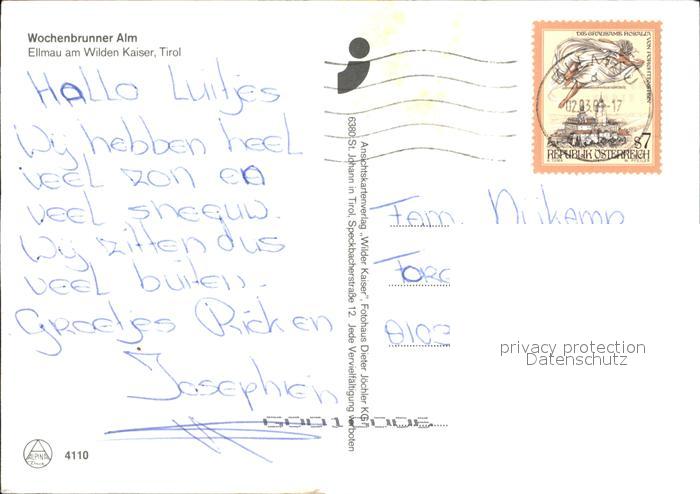 Wochenbrunner Alm
Ellmau am Wilden Kaiser, Tirol
Hallo Luitjes
Wij hebben heel
veel zon en
veel sneeuw.
Wij zitten dus
veel buiten.
Groetjes Rick en
Josephien
ALPINA
4110
Ansichtskartenverlag „Wilder Kaiser", Fotohaus Dieter Jöchler KG
6380 St. Johann in Tirol, Speckbacherstraße 12. Jede Vervielfältigung verboten
DIE GRAUSAME ROSALIA VON FORCHTENSTEIN
02.03.
-17
s7
REPUBLIK ÖSTERREICH
Fam. Nijkamp
8103
privacy protection
Datenschutz